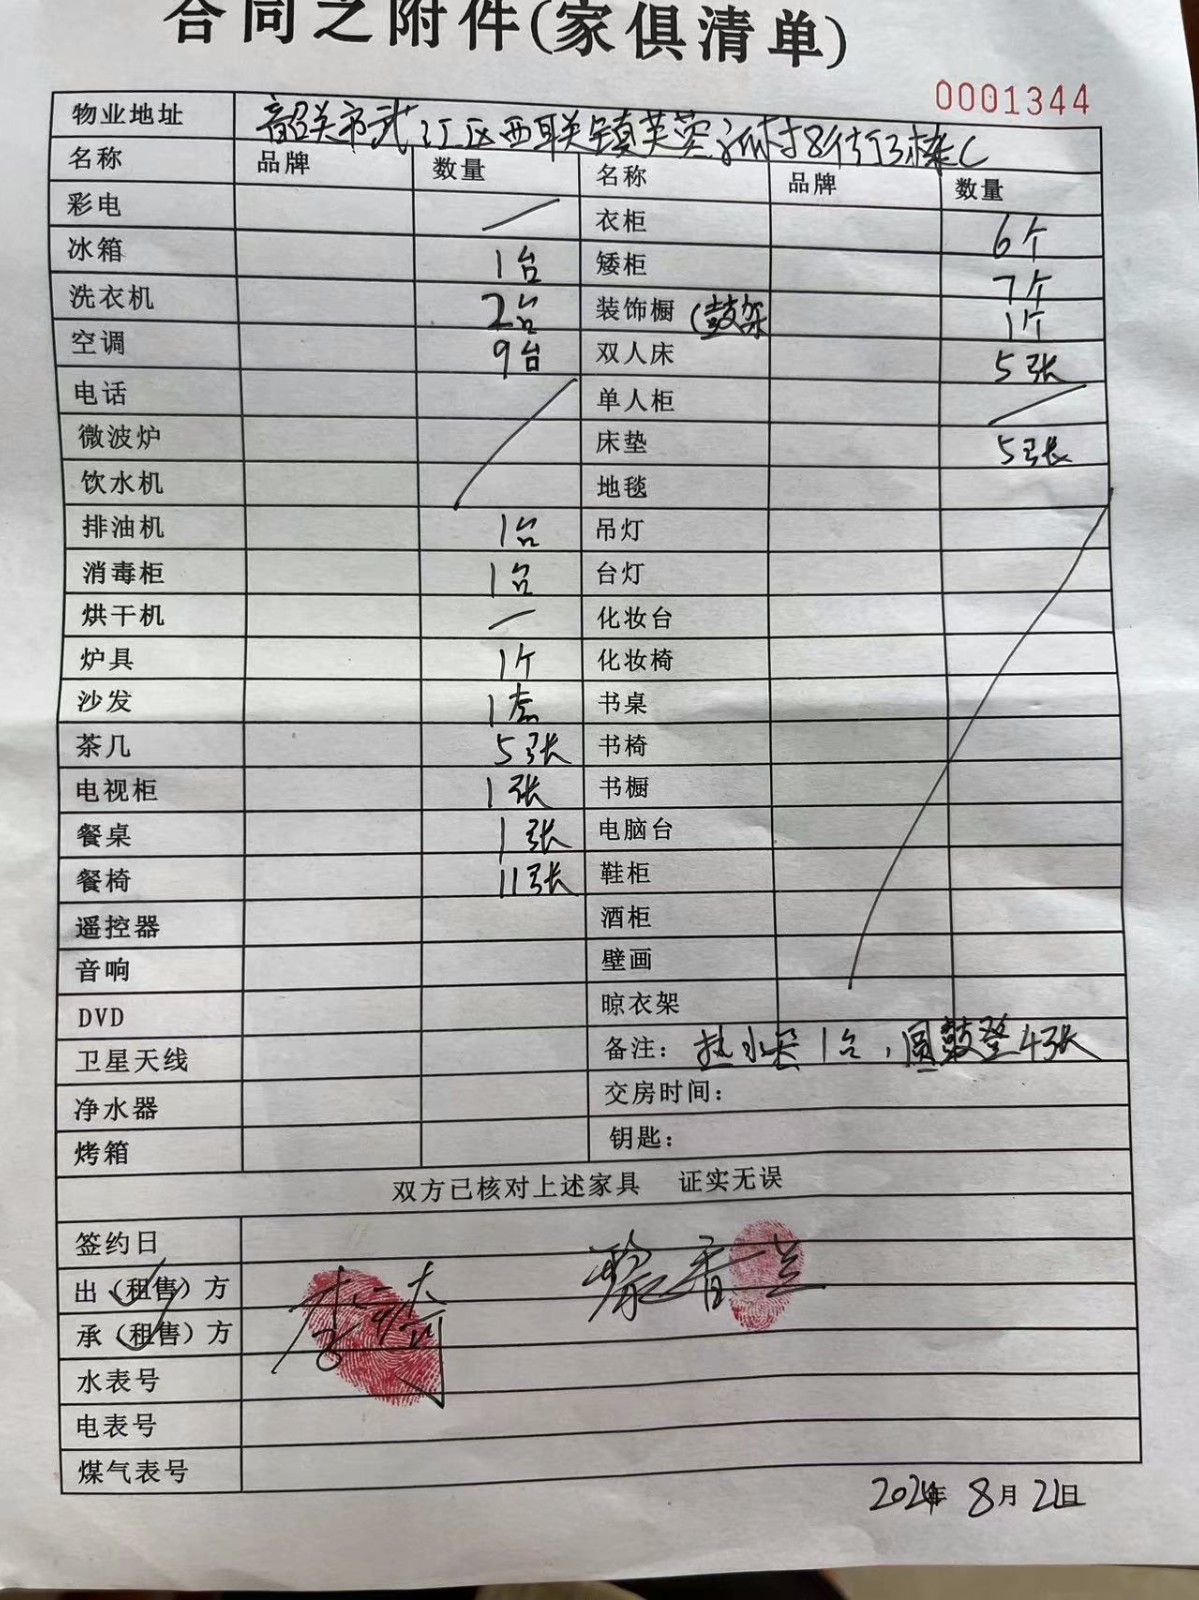 合同之附件(家俱清单)
0001344
物业地址 韶关市武江区西联镇芙蓉 村8街13栋C
名称 品牌 数量 名称 品牌 数量
彩电 衣柜 6个
冰箱 1台 矮柜 7个
洗衣机 2台 装饰橱 (鼓架 1个
空调 9台 双人床 5张
电话 单人柜
微波炉 床垫 5张
饮水机 地毯
排油机 1台 吊灯
消毒柜 1台 台灯
烘干机 化妆台
炉具 1个 化妆椅
沙发 1套 书桌
茶几 5张 书椅
电视柜 1张 书橱
餐桌 1张 电脑台
餐椅 11张 鞋柜
遥控器 酒柜
音响 壁画
DVD 晾衣架
卫星天线 备注: 热水器1台,圆鼓凳4张
净水器 交房时间:
烤箱 钥匙:
双方已核对上述家具 证实无误
签约日
出(租售)方
承(租售)方
水表号
电表号
煤气表号
年 8月21日